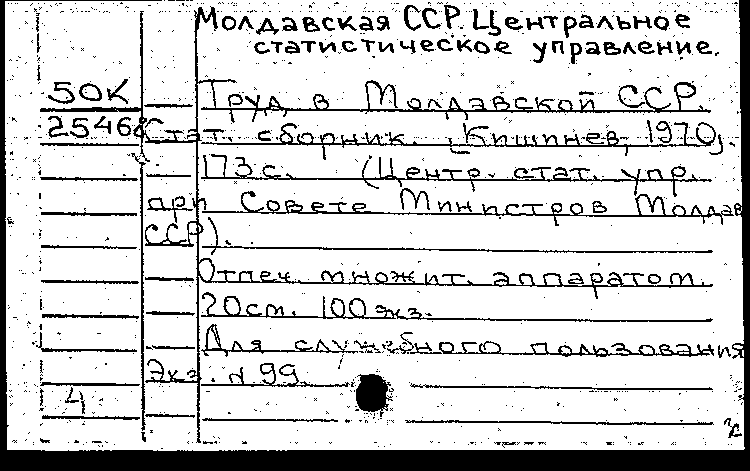 Молдавская ССР. Центральное
статистическое управление.
50К Труд в Молдавской ССР.
25468 Стат. сборник. [Кишинев, 1970].
173 с. (Центр. стат. упр.
при Совете Министров Молдав
ССР).
Отпеч. множит. аппаратом.
20 см. 100 экз.
Для служебного пользования
Экз. N 99
4